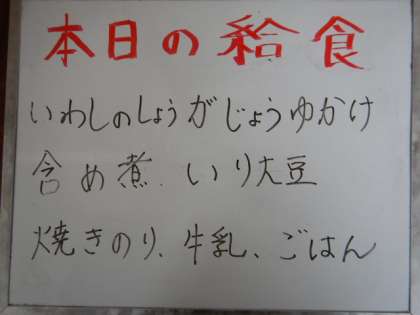 本日の給食
いわしのしょうがじょうゆかけ
含め煮、いり大豆
焼きのり、牛乳、ごはん